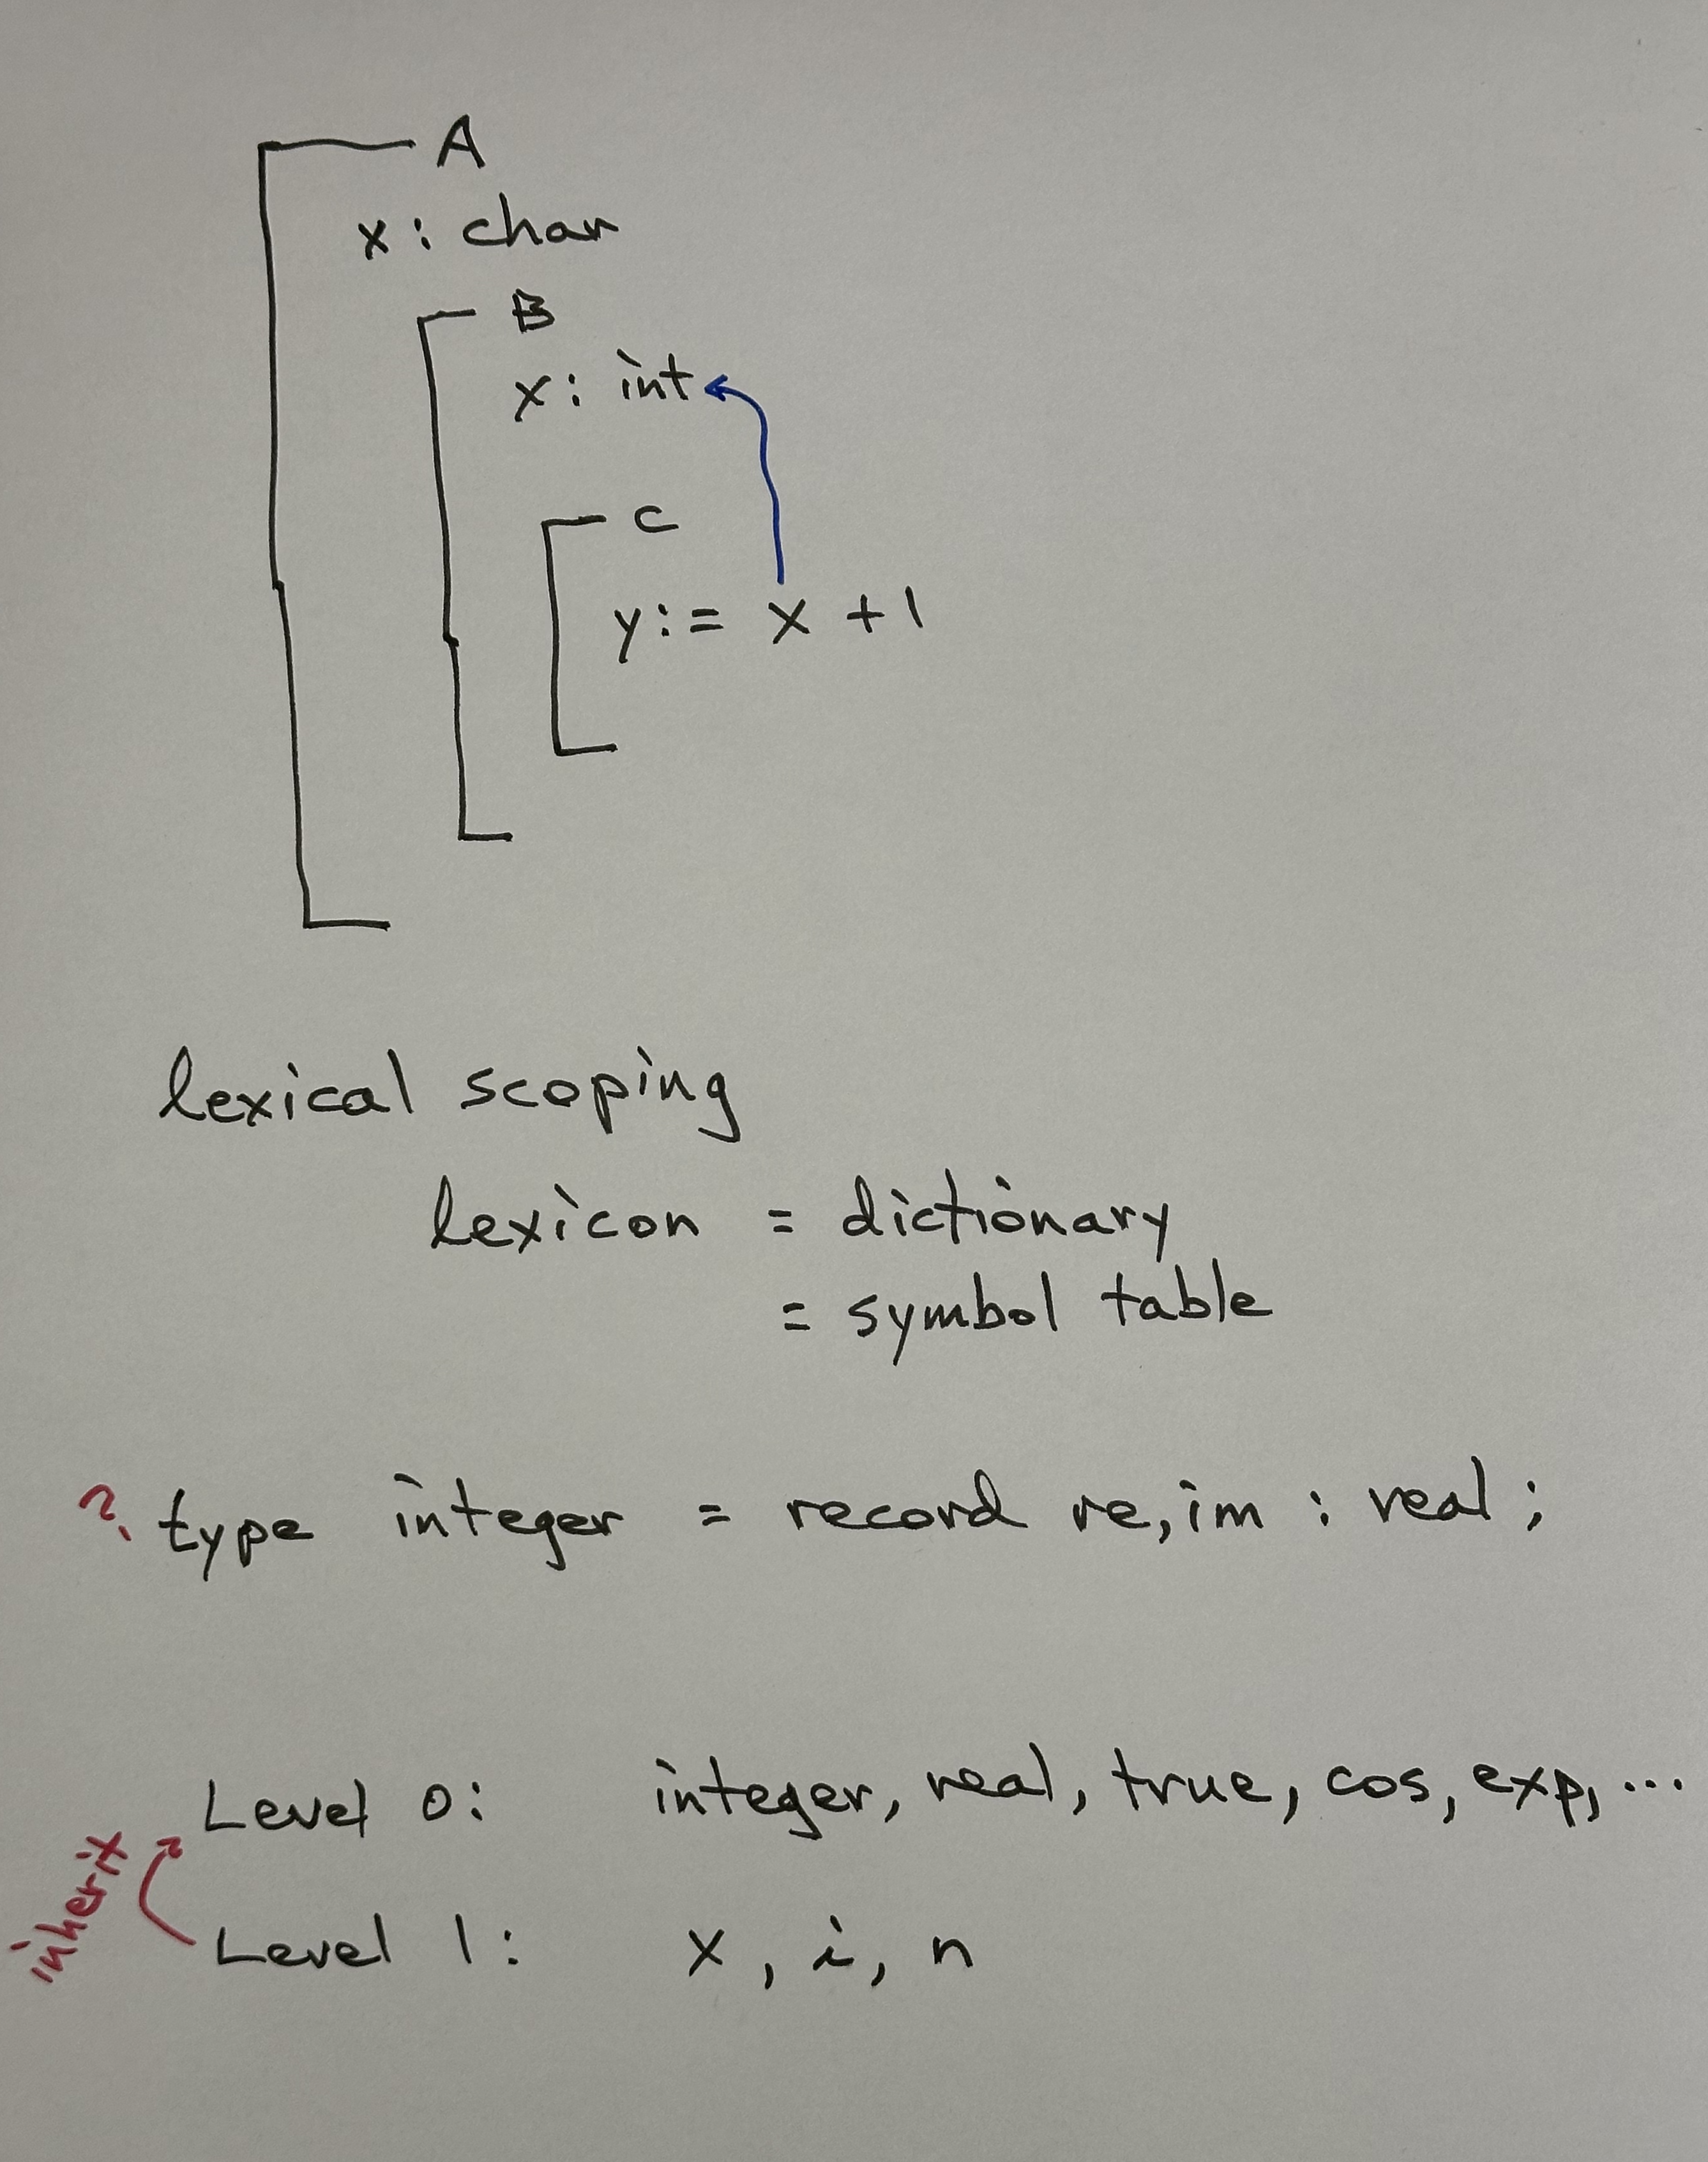 A
x: char
B
x: int
C
y:= x + 1
lexical scoping
lexicon = dictionary
= symbol table
? type integer = record re, im : real ;
Level 0: integer, real, true, cos, exp, ...
inherit
Level 1: x, i, n